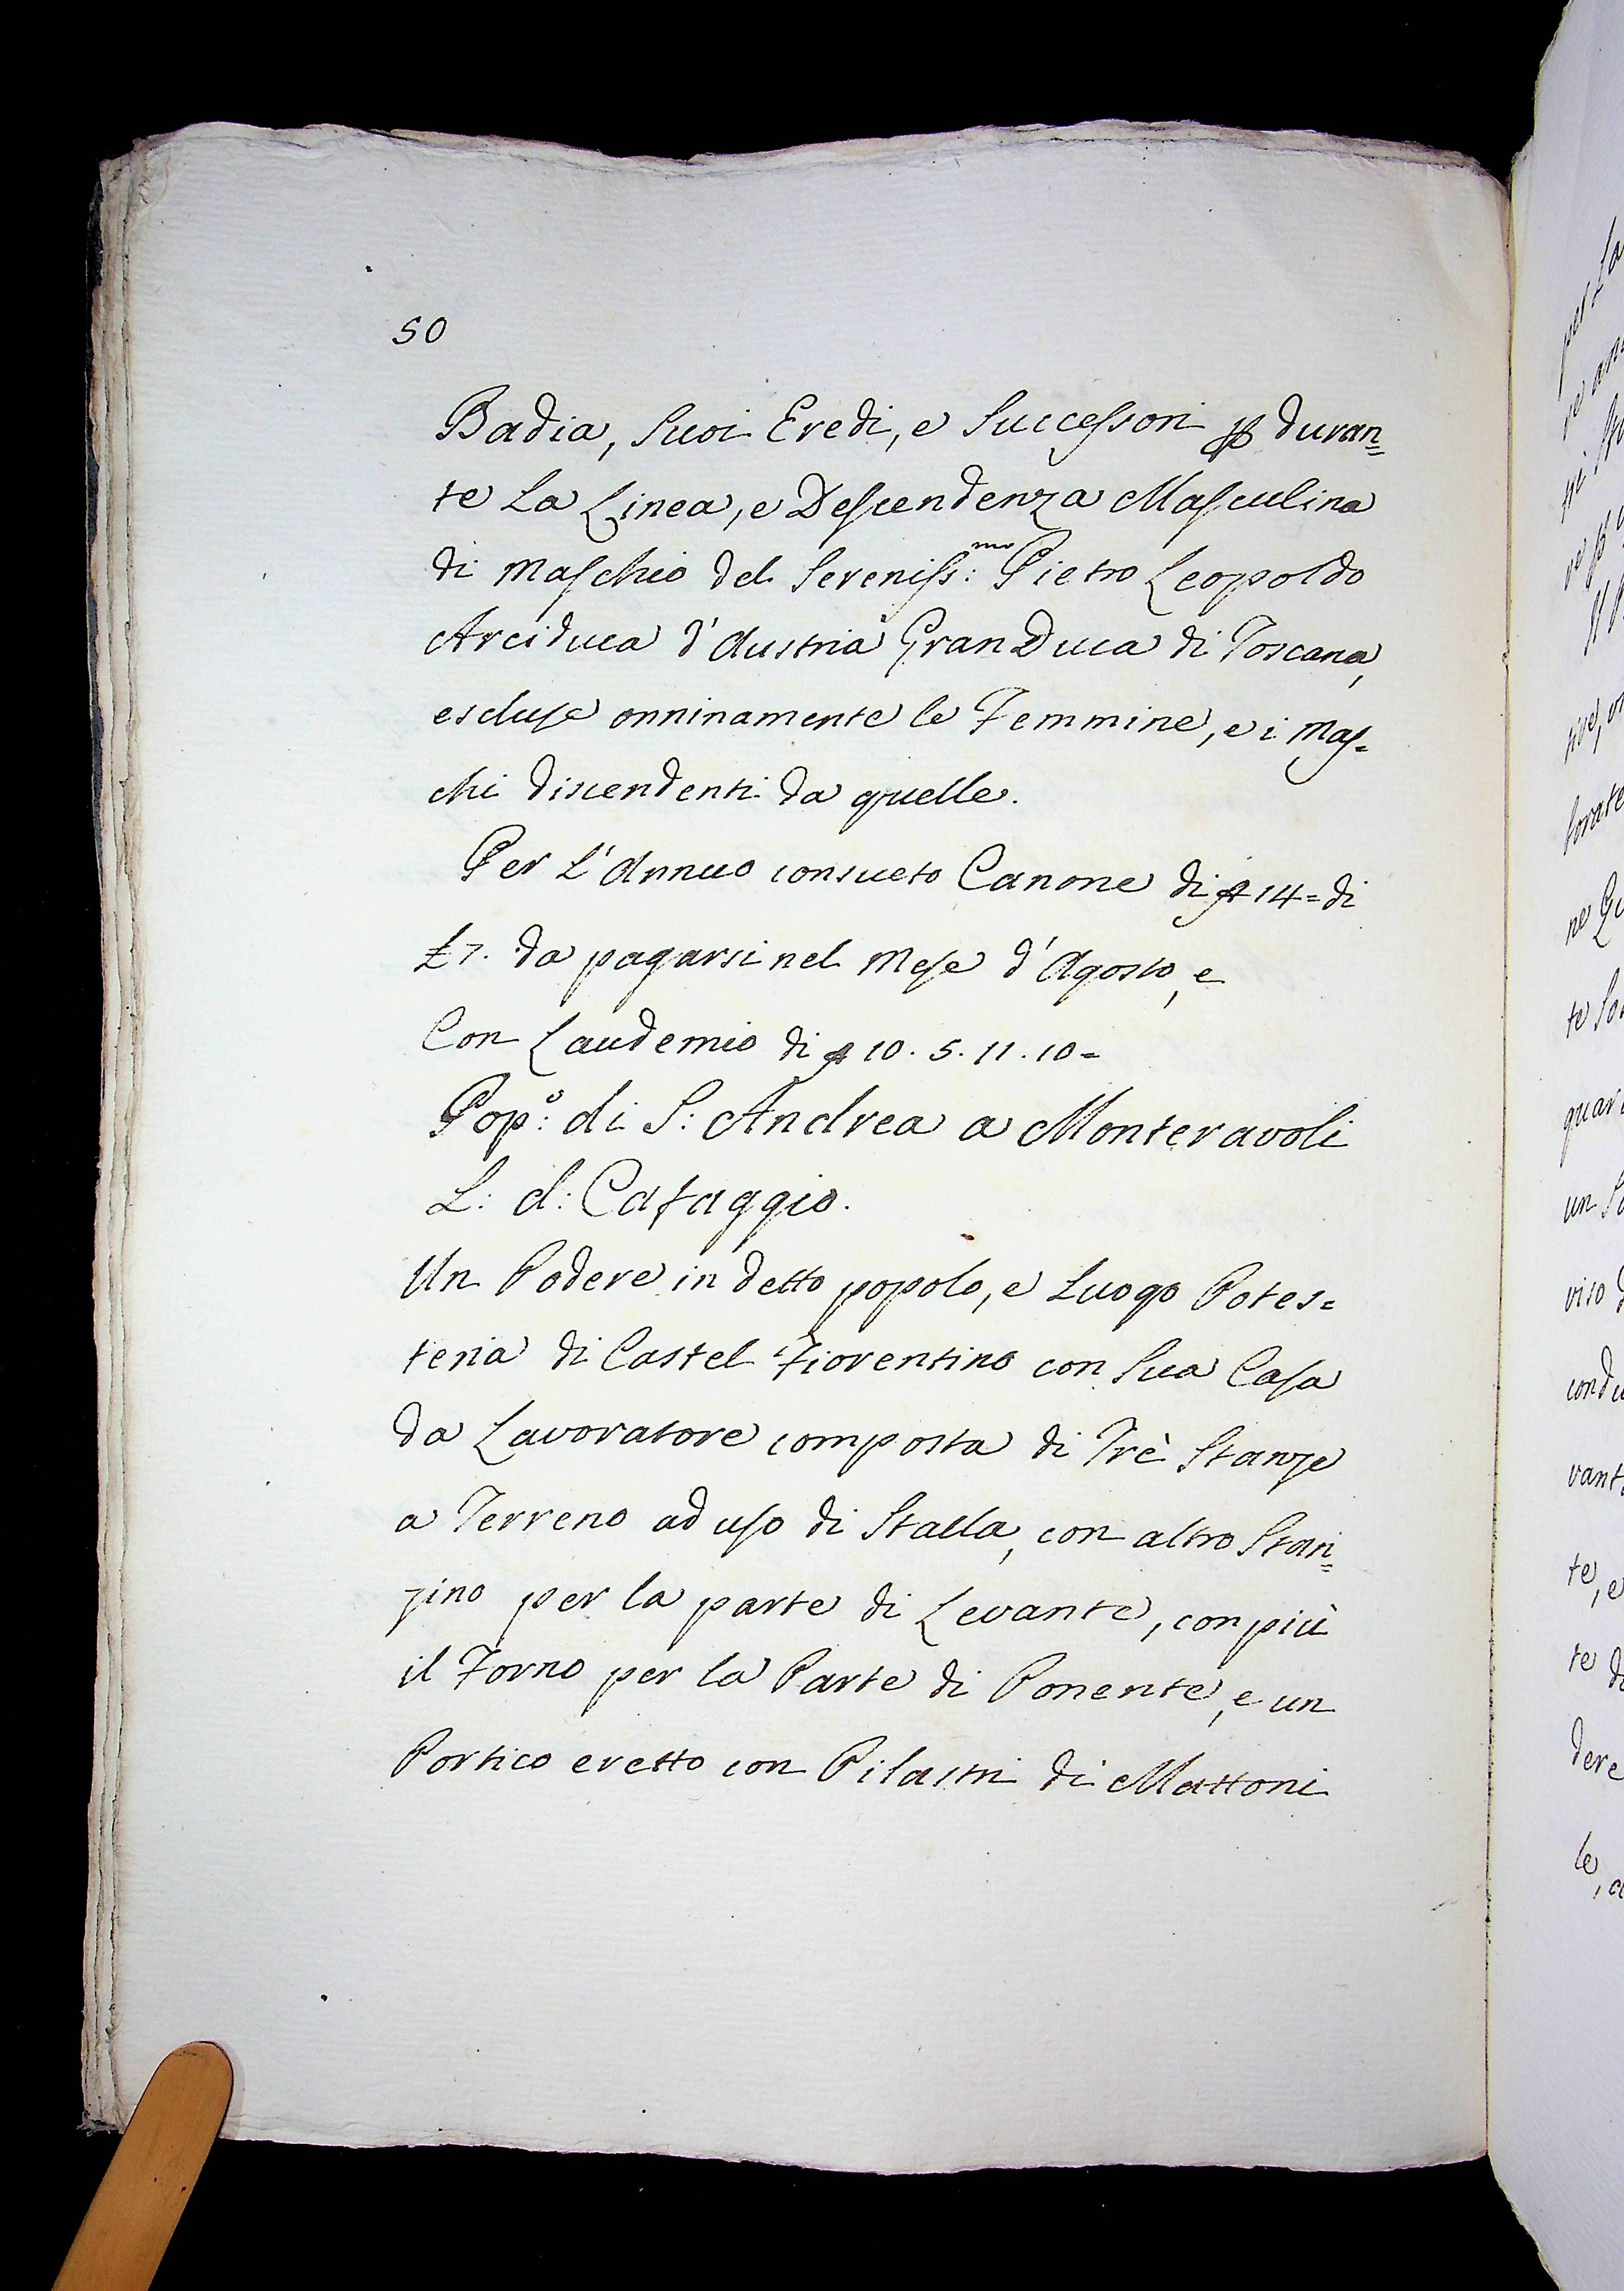 50
Badia, Suoi Eredi, e Successori ꝑ duran=
te La Linea, e Descendenza Masculina
di Maschio del Sereniss:mo Pietro Leopoldo
Arciduca d'Austria GranDuca di Toscana,
escluse onninamente le Femmine, e i Mas=
chi discendenti da quelle.
Per L'Annuo consueto Canone di 14= di
£7. da pagarsi nel Mese d'Agosto, e
Con Laudemio di 10. 5. 11. 10=
Pop:o di S: Andrea a Monteravoli
L: d: Cafaggio.
Un Podere in detto popolo, e Luogo Potes=
teria di Castel Fiorentino con Sua Casa
da Lavoratore composta di Trè Stanze
a Terreno ad uso di Stalla, con altro Stan=
zino per la parte di Levante, con più
il Forno per la Parte di Ponente, e un
Portico eretto con Pilastri di Mattoni